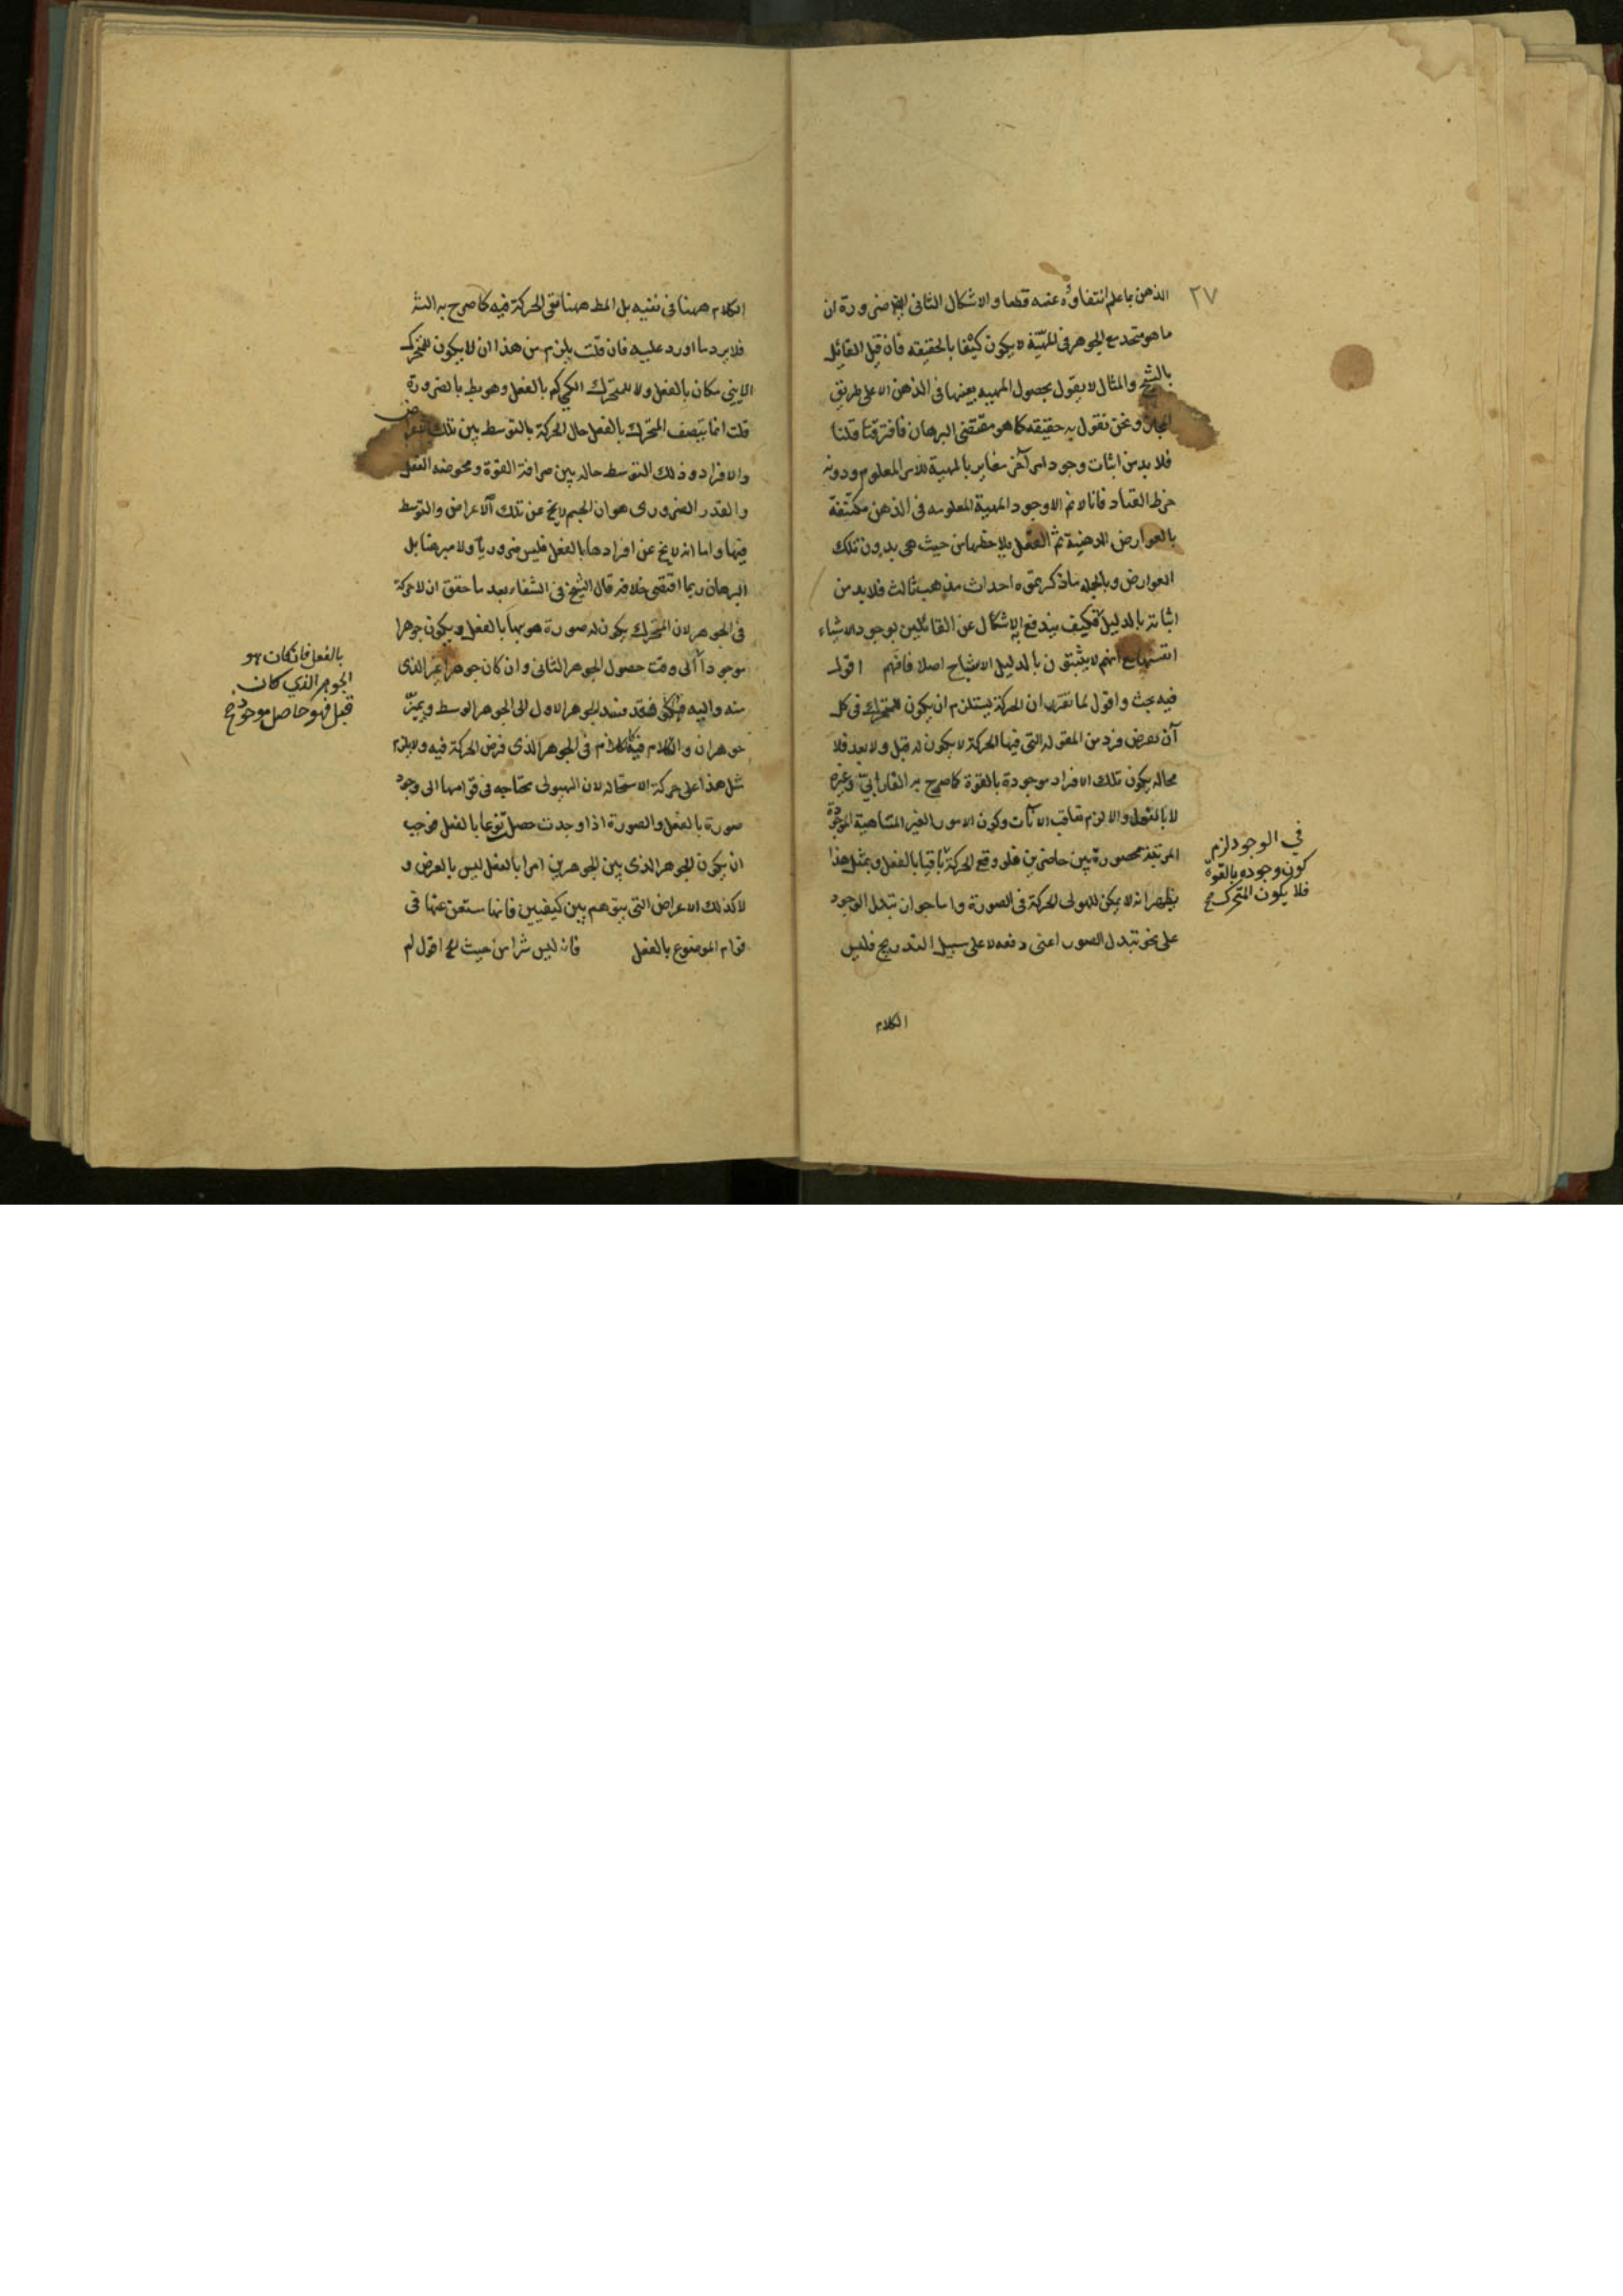 ٢٧
الذهن ما علم انتفاؤه عنه قطعا والاشكال الثانى ايضا ضرورة ان
ما هو متحد مع الجوهر فى المهيّة لا يكون كيفا بالحقيقه فان قيل القائل
بالشبح والمثال لا يقول بحصول المهيه بعينها فى الذهن الا على طريق
المجاز ونحن نقول به حقيقه كما هو مقتضى البرهان فافترقتا قلنا
فلا بد من اثبات وجود امر آخر مغاير بالمهية للامر المعلوم ودونه
خرط القتاد فانا لا نم الا وجود المهية المعلومه فى الذهن مكتنفة
بالعوارض الذهنية ثم العقل يلاحظها من حيث هى بدون تلك
العوارض وبالجمله ما ذكرتموه احداث مذهب ثالث فلا بد من
اثباته بالدليل فكيف يندفع الاشكال عن القائلين بوجود الاشياء
انفسها مع انهم لا يثبتون بالدليل الاشباح اصلا فافهم اقول
فيه بحث واقول لما تقرر ان الحركة يستلزم ان يكون للمتحرك فى كل
آن تعرض فرد من المقوله التى فيها الحركة لا يكون له قبل ولا بعد فلا
محاله يكون تلك الافراد موجودة بالقوة كما صرح به الفارابى وغيره
لا بالفعل والا لزم تعاقب الآنات وكون الامور الغير المتناهية الموجودة
المرتبة محصورة بين حاصرين فلو وقع الحركة باقيا بالفعل وبمثل هذا
يظهر انه لا يمكن للهيولى الحركة فى الصورة واما جواز تبدل الوجود
على نحو تبدل الصور اعنى دفعه لا على سبيل التدريج فليس
في الوجود لزم
كون وجوده بالقوة
فلا يكون المتحرك صح
الكلام
الكلام ههنا فى نفيه بل المط ههنا نفى الحركة فيه كما صرح به الش
فلا يرد ما اورد عليه فان قلت يلزم من هذا ان لا يكون للمتحرك
الاينى مكان بالفعل ولا للمتحرك الكمى كم بالفعل وهو بط بالضرورة
قلت انما يتصف المتحرك بالفعل حال الحركة بالتوسط بين تلك
والافراد وذلك التوسط حاله بين صرافة القوة ومحوضه الفعل
والقدر الضرورى هو ان الجسم لا يخ عن تلك الاعراض والتوسط
فيها واما انه لا يخ عن افرادها بالفعل فليس ضروريا ولا مبرهنا بل
البرهان ربما اقتضى خلافه قال الشيخ فى الشفاء بعد ما حقق ان لا حركة
فى الجوهر لان المتحرك يكون له صورة هو بها بالفعل ويكون جوهرا
موجودا الى وقت حصول الجوهر الثانى وان كان جوهرا غير الذى
منه واليه فقد فسد الجوهر الاول الى الجوهر الوسط وتميّز
جوهران والكلام فيه كالكلام فى الجوهر الذى فرض الحركة فيه ولا يلزم
مثل هذا على حركة الاستحاله لان الهيولى محتاجه فى قوامها الى وجود
صورة بالفعل والصورة اذا وجدت حصل نوعا بالفعل فوجب
ان يكون الجوهر الذى بين الجوهرين امرا بالفعل ليس بالعرض و
لا كذلك الاعراض التى يتوهم بين كيفيين فانها مستغن عنها فى
قوام الموضوع بالفعل فانه ليس شرا من حيث هو اقول لم
بالفعل فان كان هو
الجوهر الذي كان
قبل فهو حاصل موجود صح